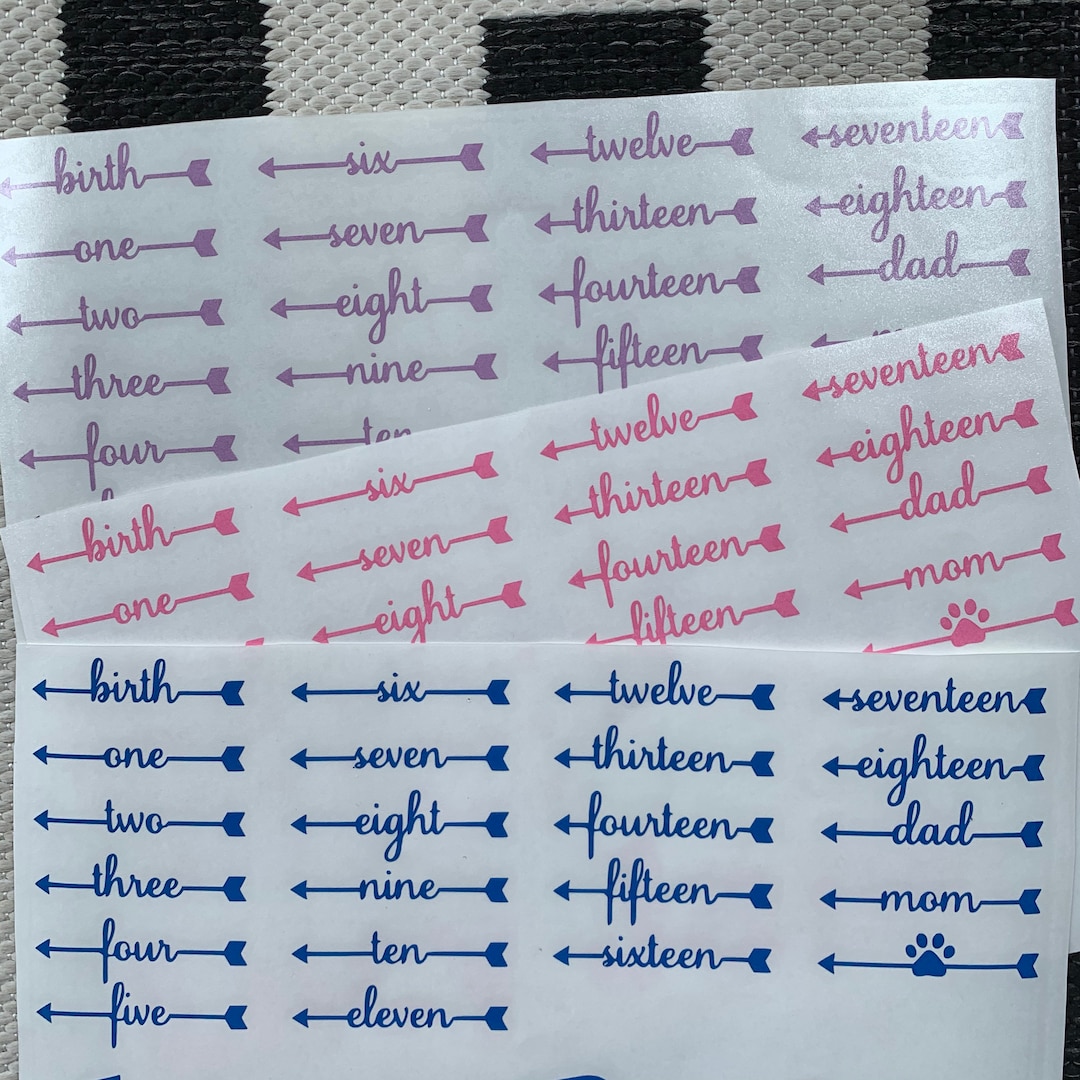 birth
one
two
three
four
six
seven
eight
nine
ten
twelve
thirteen
fourteen
fifteen
seventeen
eighteen
dad
birth
one
six
seven
eight
twelve
thirteen
fourteen
fifteen
seventeen
eighteen
dad
mom
birth
one
two
three
four
five
six
seven
eight
nine
ten
eleven
twelve
thirteen
fourteen
fifteen
sixteen
seventeen
eighteen
dad
mom